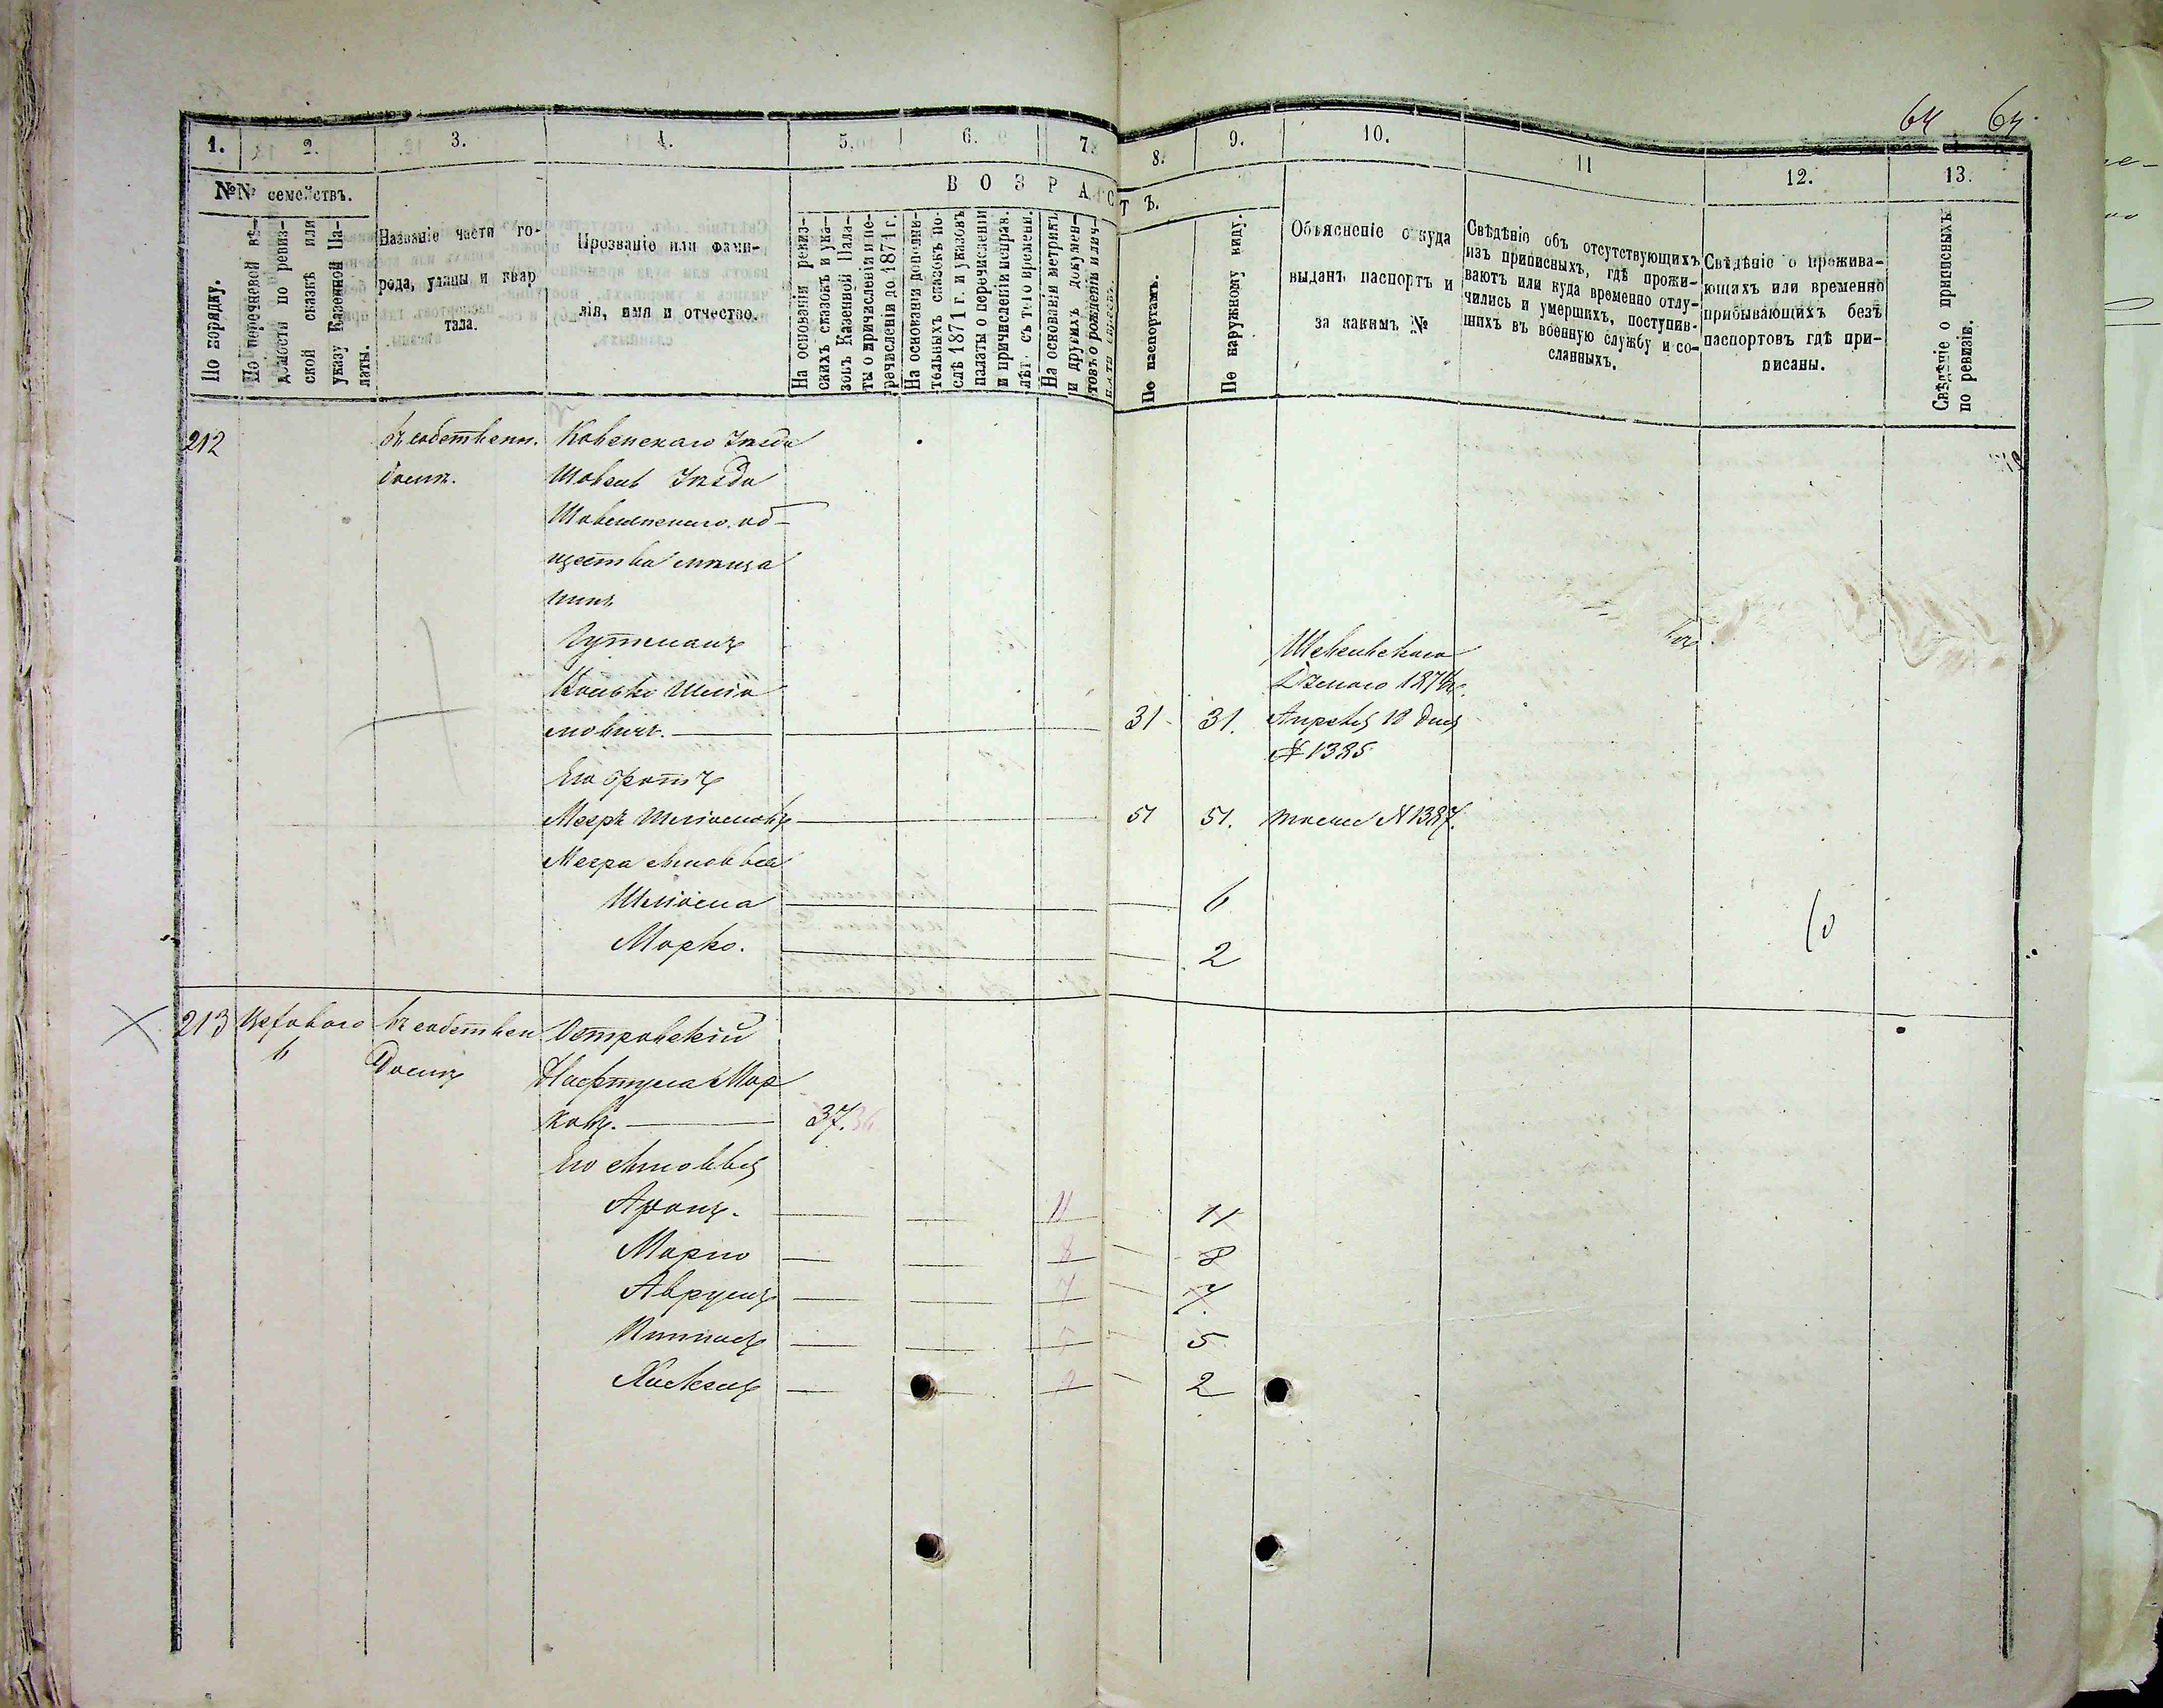 64 64.
1. 2. 3. 4. 5. 6. 7. 8. 9. 10. 11 12. 13.
№№ семействъ.
По порядку.
По перечневой вѣ-
домости по ревиз-
ской сказкѣ или
указу Казенной Па-
латы.
Названіе части го-
рода, улицы и квар
тала.
Прозваніе или фами-
лія, имя и отчество.
ВОЗРАСТЪ.
На основаніи ревиз-
скихъ сказокъ и ука-
зовъ Казенной Пала-
ты о причисленіи и пе-
речисленіи до 1871 г.
На основаніи дополни-
тельныхъ сказокъ по-
слѣ 1871 г. и указовъ
палаты о перечисленіи
и причисленіи исправ.
лѣт. съ того времени.
На основаніи метрикъ
и другихъ докумен-
товъ о рожденіи и лич-
По паспортамъ.
По наружному виду.
Объясненіе откуда
выданъ паспортъ и
за какимъ №
Свѣдѣніе объ отсутствующихъ
изъ приписныхъ, гдѣ прожи-
ваютъ или куда временно отлу-
чились и умершихъ, поступив-
шихъ въ военную службу и со-
сланныхъ.
Свѣдѣніе о прожива-
ющихъ или временно
прибывающихъ безъ
паспортовъ гдѣ при-
писаны.
Свѣдѣніе о приписныхъ
по ревизіи.
212 въ собственн. Ковенскаго Уезда
домѣ. Шавель Уезда
Шавельскаго об-
щества мѣща
нинъ
Гутманъ Шавельскаго
Шлio 1874 г.
мовичъ. 31 31. Апреля 18 дня
№ 1385
Его братъ
Мееръ Шліомовъ 51 51. тоже № 1387.
Меера сыновья
Шліома 6
Марко. 2
213 Цехового въ собствен Островскій
6 домъ Нафтула Мар
ковъ. 37. 36
Его сыновья
Аронъ. 11 11
Марко 8 8
Аврумъ 7 7
Пинхасъ 5 5
Хаскель 2 2